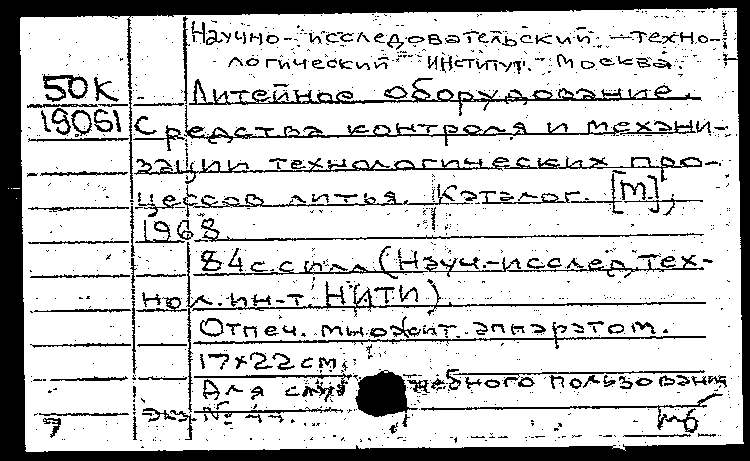 Научно-исследовательский техно-
логический институт. Москва.
50К Литейное оборудование.
19061 Средства контроля и механи-
зации технологических про-
цессов литья. Каталог. [М],
1968.
84 с. с илл. (Науч.-исслед. тех-
нол. ин-т. НИТИ).
Отпеч. множит. аппаратом.
17×22 см.
Для служебного пользования
7 экз. № 44. мб